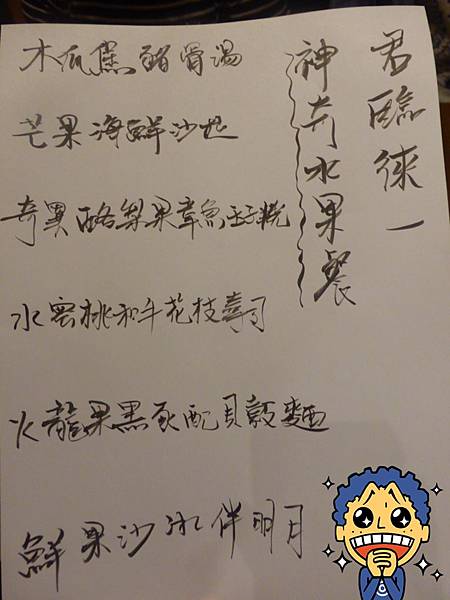 君臨徠一
神奇水果餐
木瓜蕉豬骨湯
芒果海鮮沙拉
奇異酪梨果章魚
水蜜桃和牛花枝壽司
火龍果黑豕配貝殼麵
鮮果沙冰伴明月